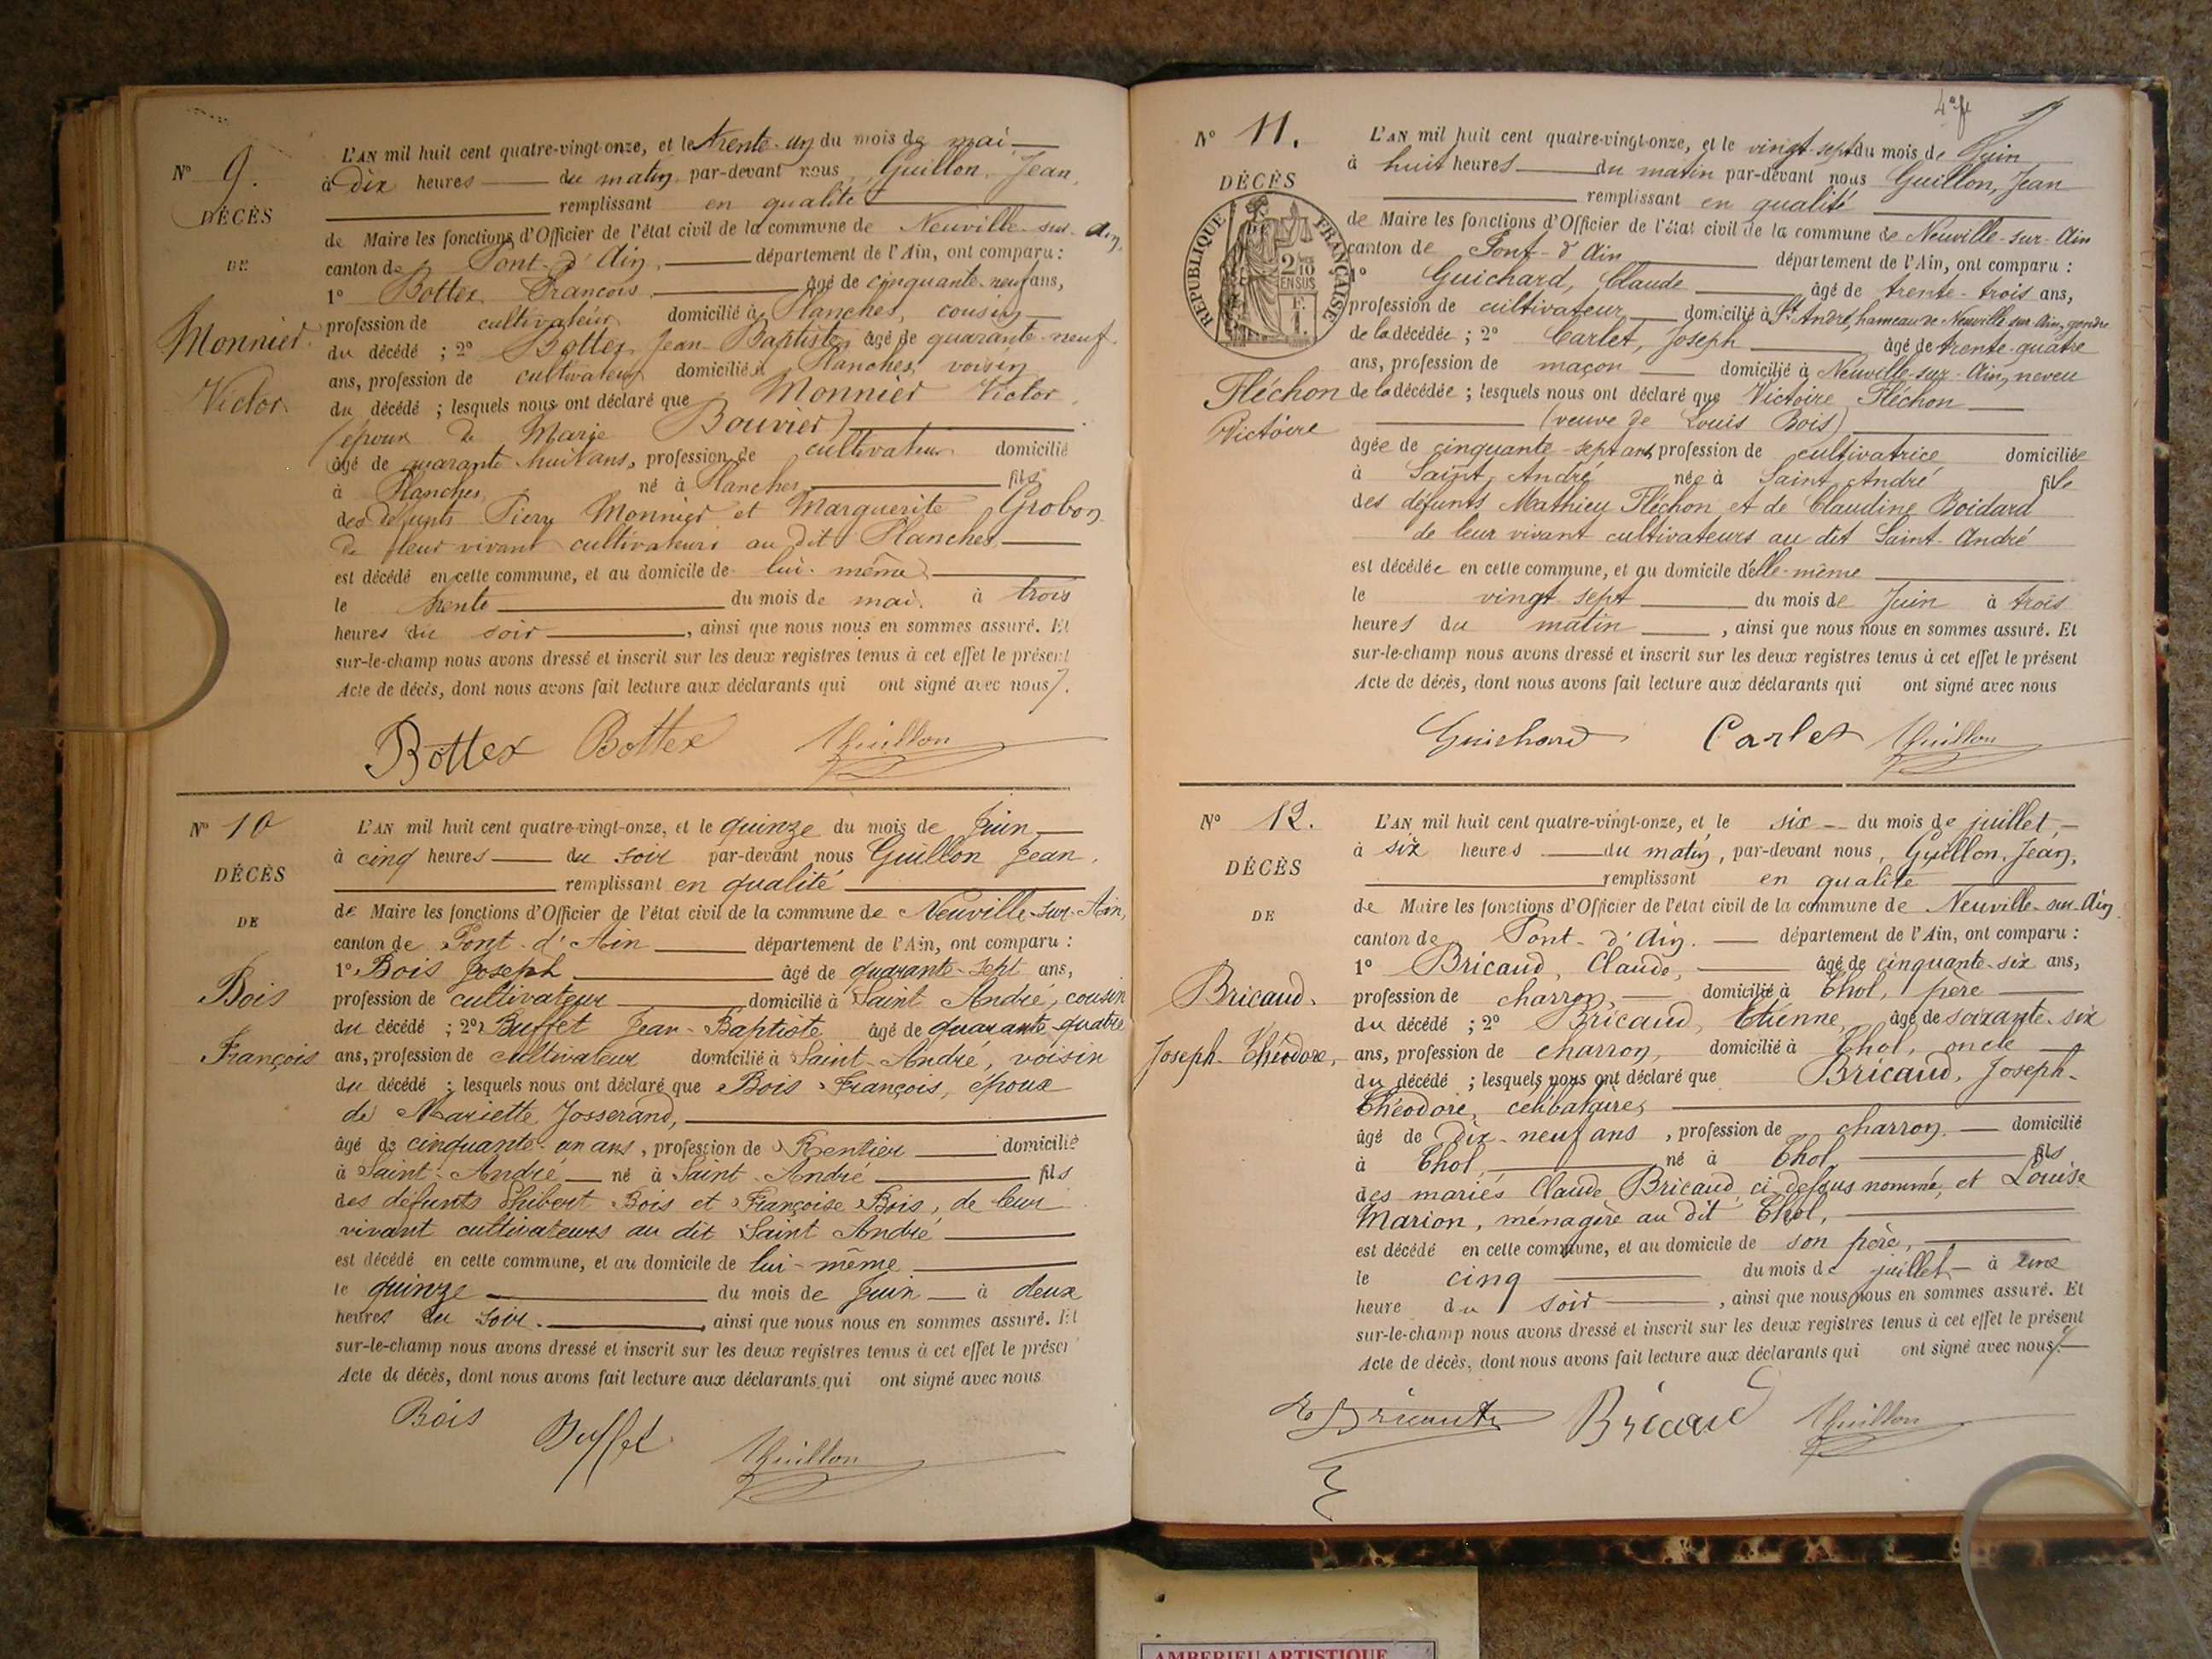 N° 9.
DÉCÈS
DE
Monnier
Victor.
L'AN mil huit cent quatre-vingt-onze, et le trente-un du mois de mai
à Dix heures du matin par-devant nous Guillon, Jean,
remplissant en qualité
de Maire les fonctions d'Officier de l'état civil de la commune de Neuville-sur-Ain,
canton de Pont-d'Ain, département de l'Ain, ont comparu :
1° Bottex François âgé de cinquante-neuf ans,
profession de cultivateur domicilié à Planches, cousin
du décédé ; 2° Bottex Jean Baptiste, âgé de quarante-neuf
ans, profession de cultivateur domicilié à Planches, voisin
du décédé ; lesquels nous ont déclaré que Monnier Victor,
(époux de Marie Bouvier)
âgé de quarante-huit ans, profession de cultivateur domicilié
à Planches, né à Planches fils
des défunts Pierre Monnier et Marguerite Grobon
de leur vivant cultivateurs au dit Planches
est décédé en cette commune, et au domicile de lui-même
le trente du mois de mai à trois
heures du soir, ainsi que nous nous en sommes assuré. Et
sur-le-champ nous avons dressé et inscrit sur les deux registres tenus à cet effet le présent
Acte de décès, dont nous avons fait lecture aux déclarants qui ont signé avec nous.
Bottex Bottex JGuillon
N° 10
DÉCÈS
DE
Bois
François
L'AN mil huit cent quatre-vingt-onze, et le quinze du mois de Juin
à cinq heures du soir par-devant nous Guillon Jean,
remplissant en qualité
de Maire les fonctions d'Officier de l'état civil de la commune de Neuville-sur-Ain,
canton de Pont-d'Ain département de l'Ain, ont comparu :
1° Bois Joseph âgé de quarante-sept ans,
profession de cultivateur domicilié à Saint André, cousin
du décédé ; 2° Buffet Jean-Baptiste âgé de quarante-quatre
ans, profession de cultivateur domicilié à Saint-André, voisin
du décédé ; lesquels nous ont déclaré que Bois François, époux
de Mariette Josserand,
âgé de cinquante-un ans, profession de Rentier domicilié
à Saint-André né à Saint-André fils
des défunts Philibert Bois et Françoise Bois, de leur
vivant cultivateurs au dit Saint André
est décédé en cette commune, et au domicile de lui-même
le quinze du mois de Juin à deux
heures du soir. ainsi que nous nous en sommes assuré. Et
sur-le-champ nous avons dressé et inscrit sur les deux registres tenus à cet effet le présen
Acte de décès, dont nous avons fait lecture aux déclarants qui ont signé avec nous
Bois Buffet JGuillon
N° 11.
DÉCÈS
RÉPUBLIQUE FRANÇAISE
2/10 EN SUS
Fléchon
Victoire
L'AN mil huit cent quatre-vingt-onze, et le vingt-sept du mois de Juin
à huit heures du matin par-devant nous Guillon, Jean
remplissant en qualité
de Maire les fonctions d'Officier de l'état civil de la commune de Neuville-sur-Ain
canton de Pont-d'Ain département de l'Ain, ont comparu :
1° Guichard, Claude âgé de trente-trois ans,
profession de cultivateur domicilié à St André, hameau de Neuville sur Ain, gendre
de la décédée ; 2° Carlet, Joseph âgé de trente-quatre
ans, profession de maçon domicilié à Neuville-sur-Ain, neveu
de la décédée ; lesquels nous ont déclaré que Victoire Fléchon
(veuve de Louis Bois)
âgée de cinquante-sept ans, profession de cultivatrice domiciliée
à Saint, André née à Saint André fille
des défunts Mathieu Fléchon et de Claudine Boidard
de leur vivant cultivateurs au dit Saint-André
est décédée en cette commune, et au domicile d'elle-même
le vingt-sept du mois de Juin à trois
heures du matin, ainsi que nous nous en sommes assuré. Et
sur-le-champ nous avons dressé et inscrit sur les deux registres tenus à cet effet le présent
Acte de décès, dont nous avons fait lecture aux déclarants qui ont signé avec nous
Guichard Carlet JGuillon
N° 12.
DÉCÈS
DE
Bricaud,
Joseph-Théodore,
L'AN mil huit cent quatre-vingt-onze, et le six du mois de juillet,
à six heures du matin, par-devant nous, Guillon, Jean,
remplissant en qualité
de Maire les fonctions d'Officier de l'état civil de la commune de Neuville-sur-Ain
canton de Pont-d'Ain. département de l'Ain, ont comparu :
1° Bricaud, Claude, âgé de cinquante-six ans,
profession de charron, domicilié à Thol, père
du décédé ; 2° Bricaud, Etienne, âgé de soixante-six
ans, profession de charron, domicilié à Thol, oncle
du décédé ; lesquels nous ont déclaré que Bricaud, Joseph-
Théodore, célibataire,
âgé de Dix-neuf ans, profession de charron domicilié
à Thol, né à Thol fils
des mariés Claude Bricaud ci-dessus nommé, et Louise
Marion, ménagère au dit Thol,
est décédé en cette commune, et au domicile de son père,
le cinq du mois de juillet à une
heure du soir, ainsi que nous nous en sommes assuré. Et
sur-le-champ nous avons dressé et inscrit sur les deux registres tenus à cet effet le présent
Acte de décès, dont nous avons fait lecture aux déclarants qui ont signé avec nous.
Bricaud JGuillon
AMBERIEU ARTISTIQUE